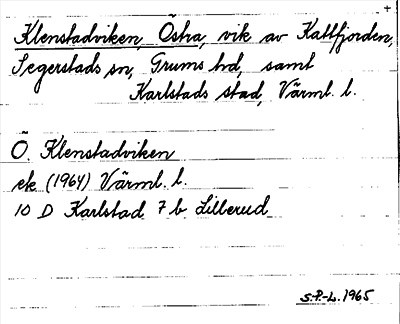 +
Klenstadviken, Östra, vik av Kattfjorden,
Segerstads sn, Grums hd, samt
Karlstads stad, Värml. l.
Ö. Klenstadviken
ek (1964) Värml. l.
10 D Karlstad 7 b Lillerud
S.P.-L. 1965